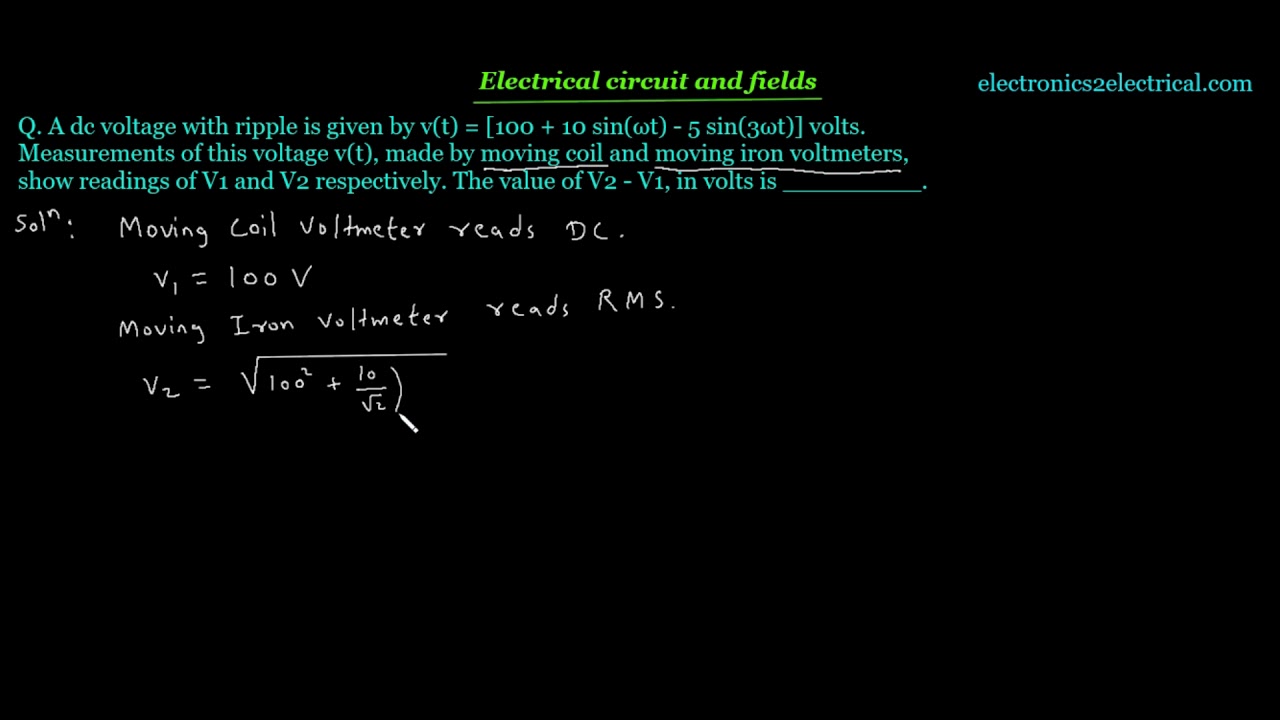 Electrical circuit and fields
electronics2electrical.com
Q. A dc voltage with ripple is given by v(t) = [100 + 10 sin(ωt) - 5 sin(3ωt)] volts.
Measurements of this voltage v(t), made by moving coil and moving iron voltmeters,
show readings of V1 and V2 respectively. The value of V2 - V1, in volts is __________.
Solⁿ: Moving Coil Voltmeter reads DC.
V₁ = 100 V
Moving Iron Voltmeter reads RMS.
V₂ = √100² + 10/√2)